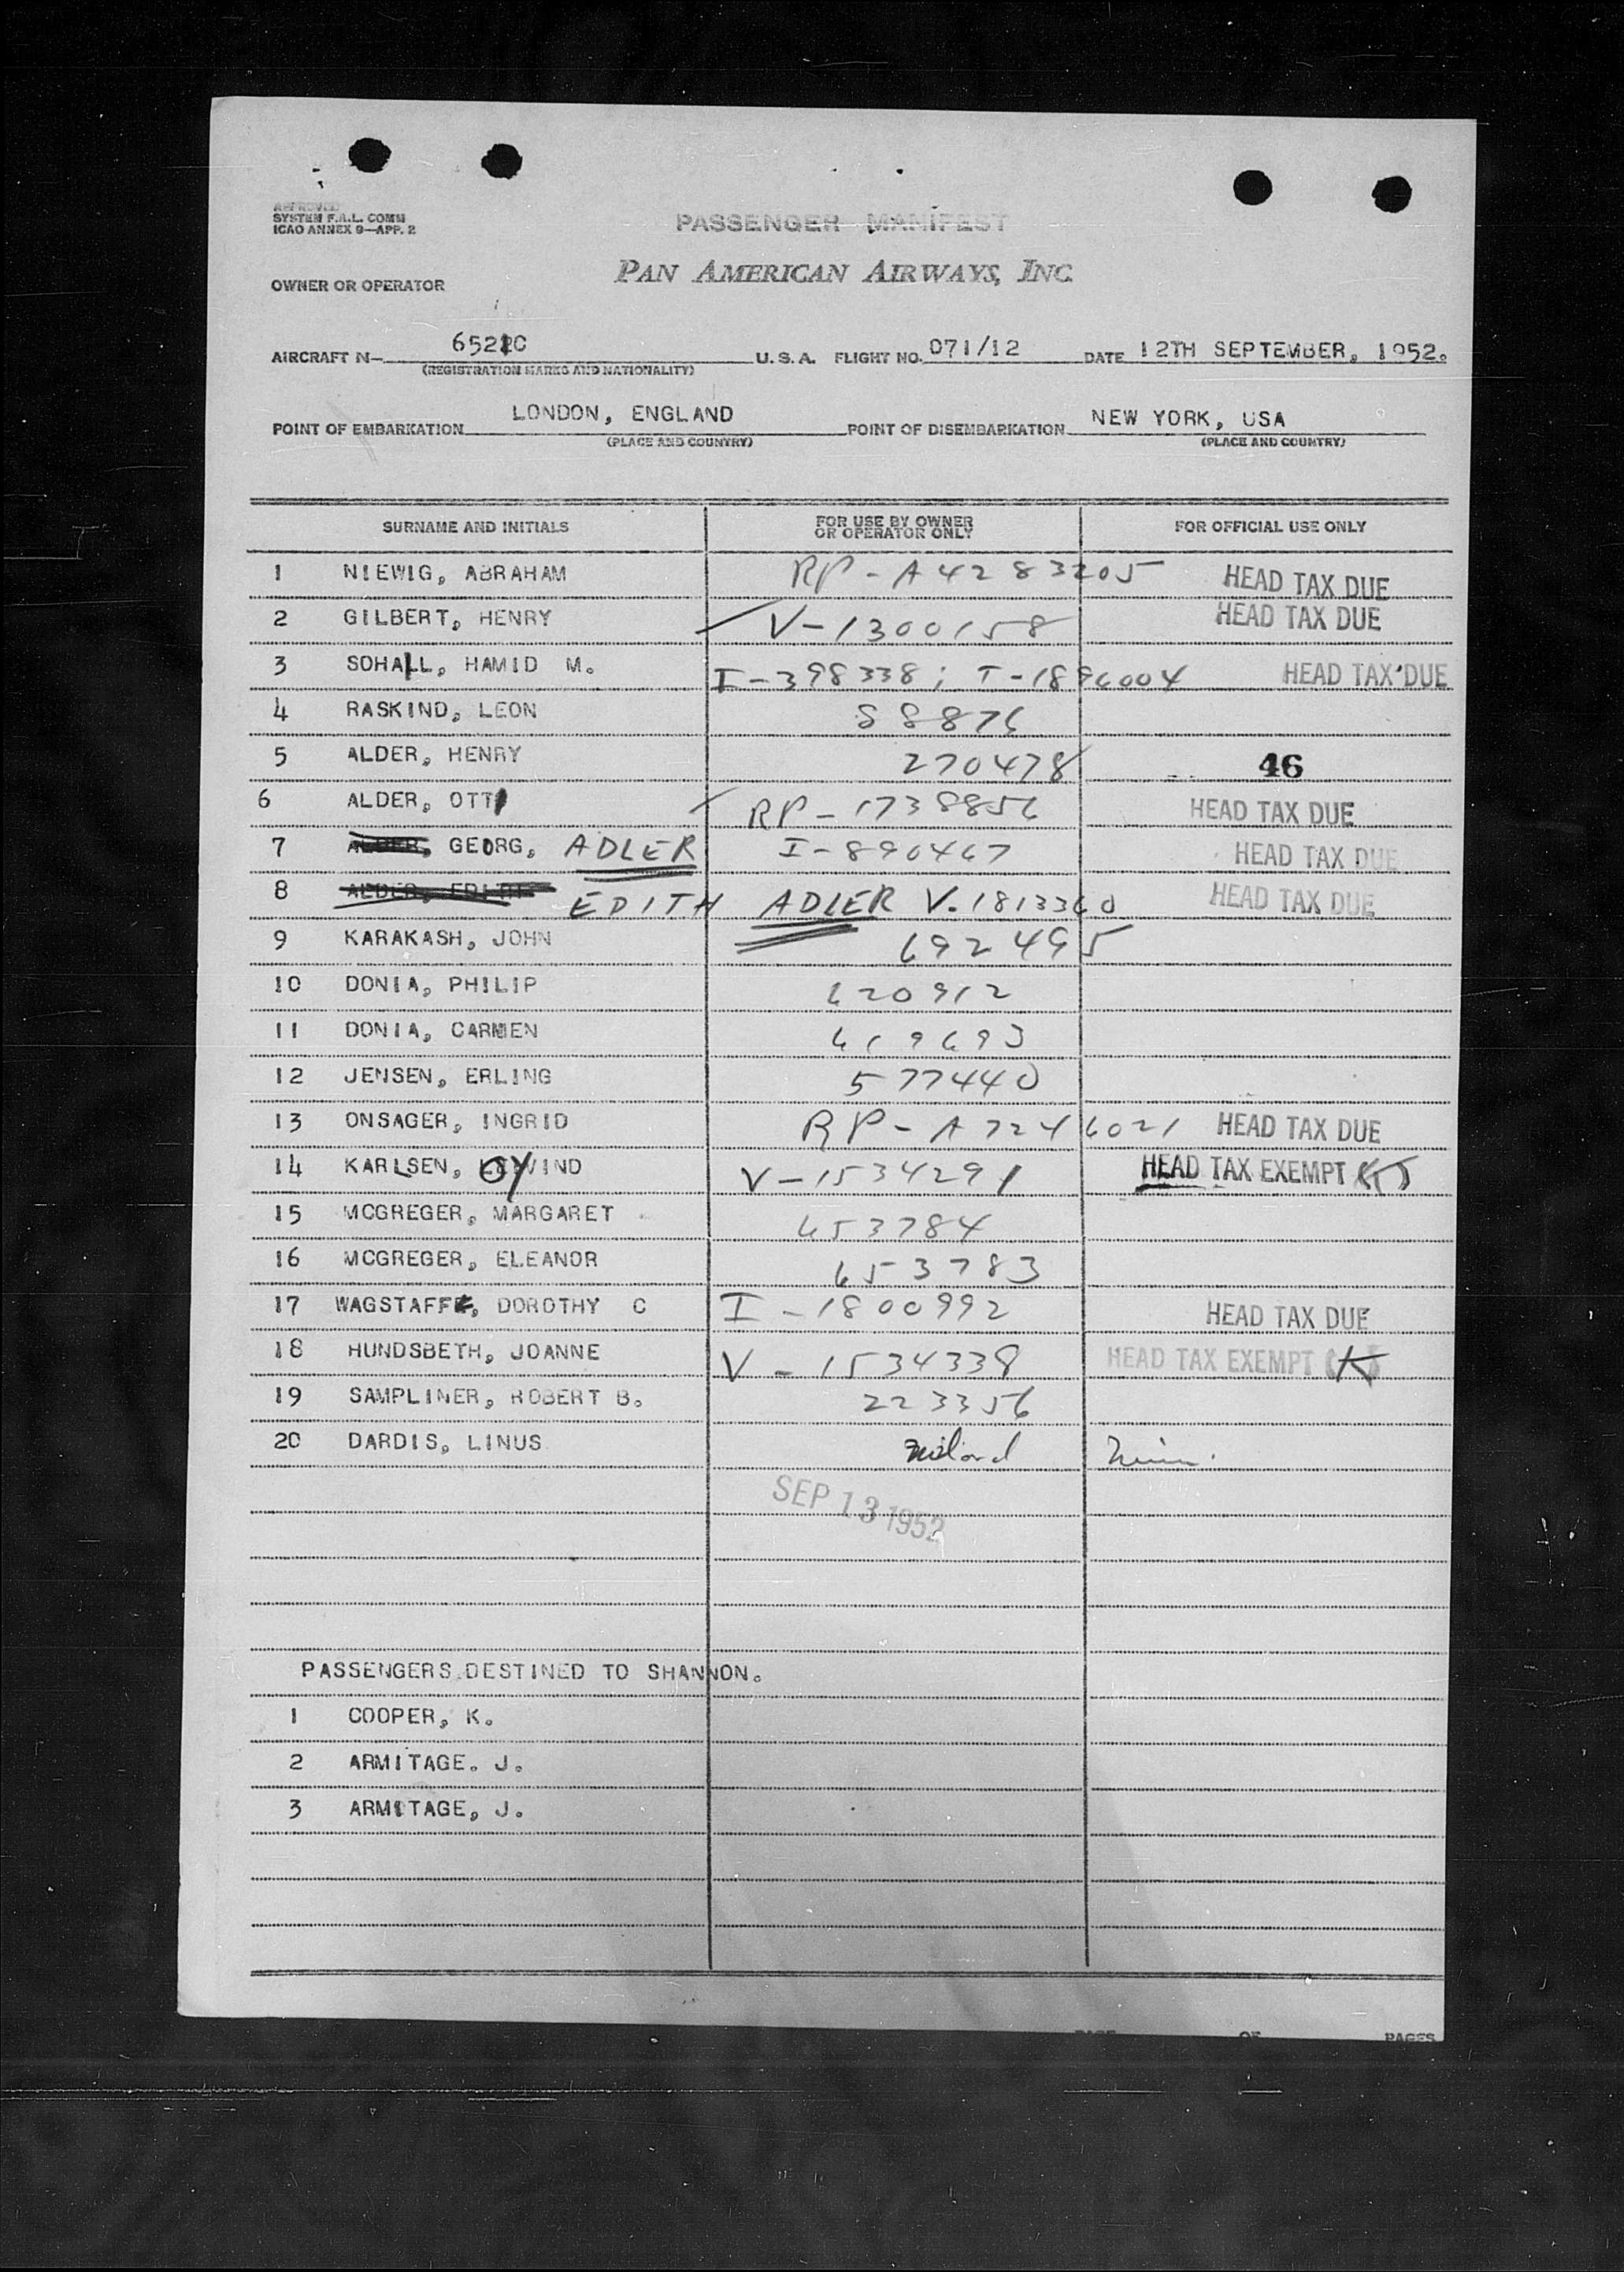 APPROVED
SYSTEM F.A.L. COMM
ICAO ANNEX 9—APP. 2
PASSENGER MANIFEST
OWNER OR OPERATOR PAN AMERICAN AIRWAYS, INC.
AIRCRAFT N— 6521C U. S. A. FLIGHT NO. 071/12 DATE 12TH SEPTEMBER, 1952.
(REGISTRATION MARKS AND NATIONALITY)
POINT OF EMBARKATION LONDON, ENGLAND POINT OF DISEMBARKATION NEW YORK, USA
(PLACE AND COUNTRY) (PLACE AND COUNTRY)
SURNAME AND INITIALS FOR USE BY OWNER OR OPERATOR ONLY FOR OFFICIAL USE ONLY
1 NIEWIG, ABRAHAM RP-A4283205 HEAD TAX DUE
2 GILBERT, HENRY V-1300158 HEAD TAX DUE
3 SOHAIL, HAMID M. I-398338; T-1896004 HEAD TAX DUE
4 RASKIND, LEON 58876
5 ALDER, HENRY 270478 46
6 ALDER, OTT RP-1738856 HEAD TAX DUE
7 ALDER, GEORG, ADLER I-890467 HEAD TAX DUE
8 ALDER, EDITH EDITH ADLER V.1813360 HEAD TAX DUE
9 KARAKASH, JOHN 692495
10 DONIA, PHILIP 620912
11 DONIA, CARMEN 619693
12 JENSEN, ERLING 577440
13 ONSAGER, INGRID RP-A7246021 HEAD TAX DUE
14 KARLSEN, OYVIND V-1534291 HEAD TAX EXEMPT (K)
15 MCGREGER, MARGARET 653784
16 MCGREGER, ELEANOR 653783
17 WAGSTAFF, DOROTHY C I-1800992 HEAD TAX DUE
18 HUNDSBETH, JOANNE V-1534338 HEAD TAX EXEMPT (K)
19 SAMPLINER, ROBERT B. 223356
20 DARDIS, LINUS
SEP 13 1952
PASSENGERS DESTINED TO SHANNON.
1 COOPER, K.
2 ARMITAGE. J.
3 ARMITAGE, J.
PAGE OF PAGES